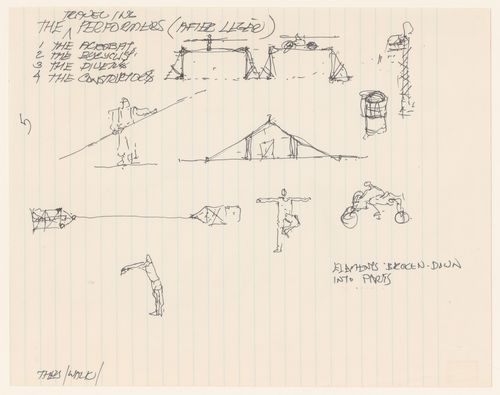 THE TRAVELING PERFORMERS (AFTER LEGER)
1 THE ACROBAT
2 THE BICYCLIST
3 THE DIVERS
4 THE CONSTRUCTORS
5
ELEMENTS BROKEN-DOWN
INTO PARTS
/WALK/